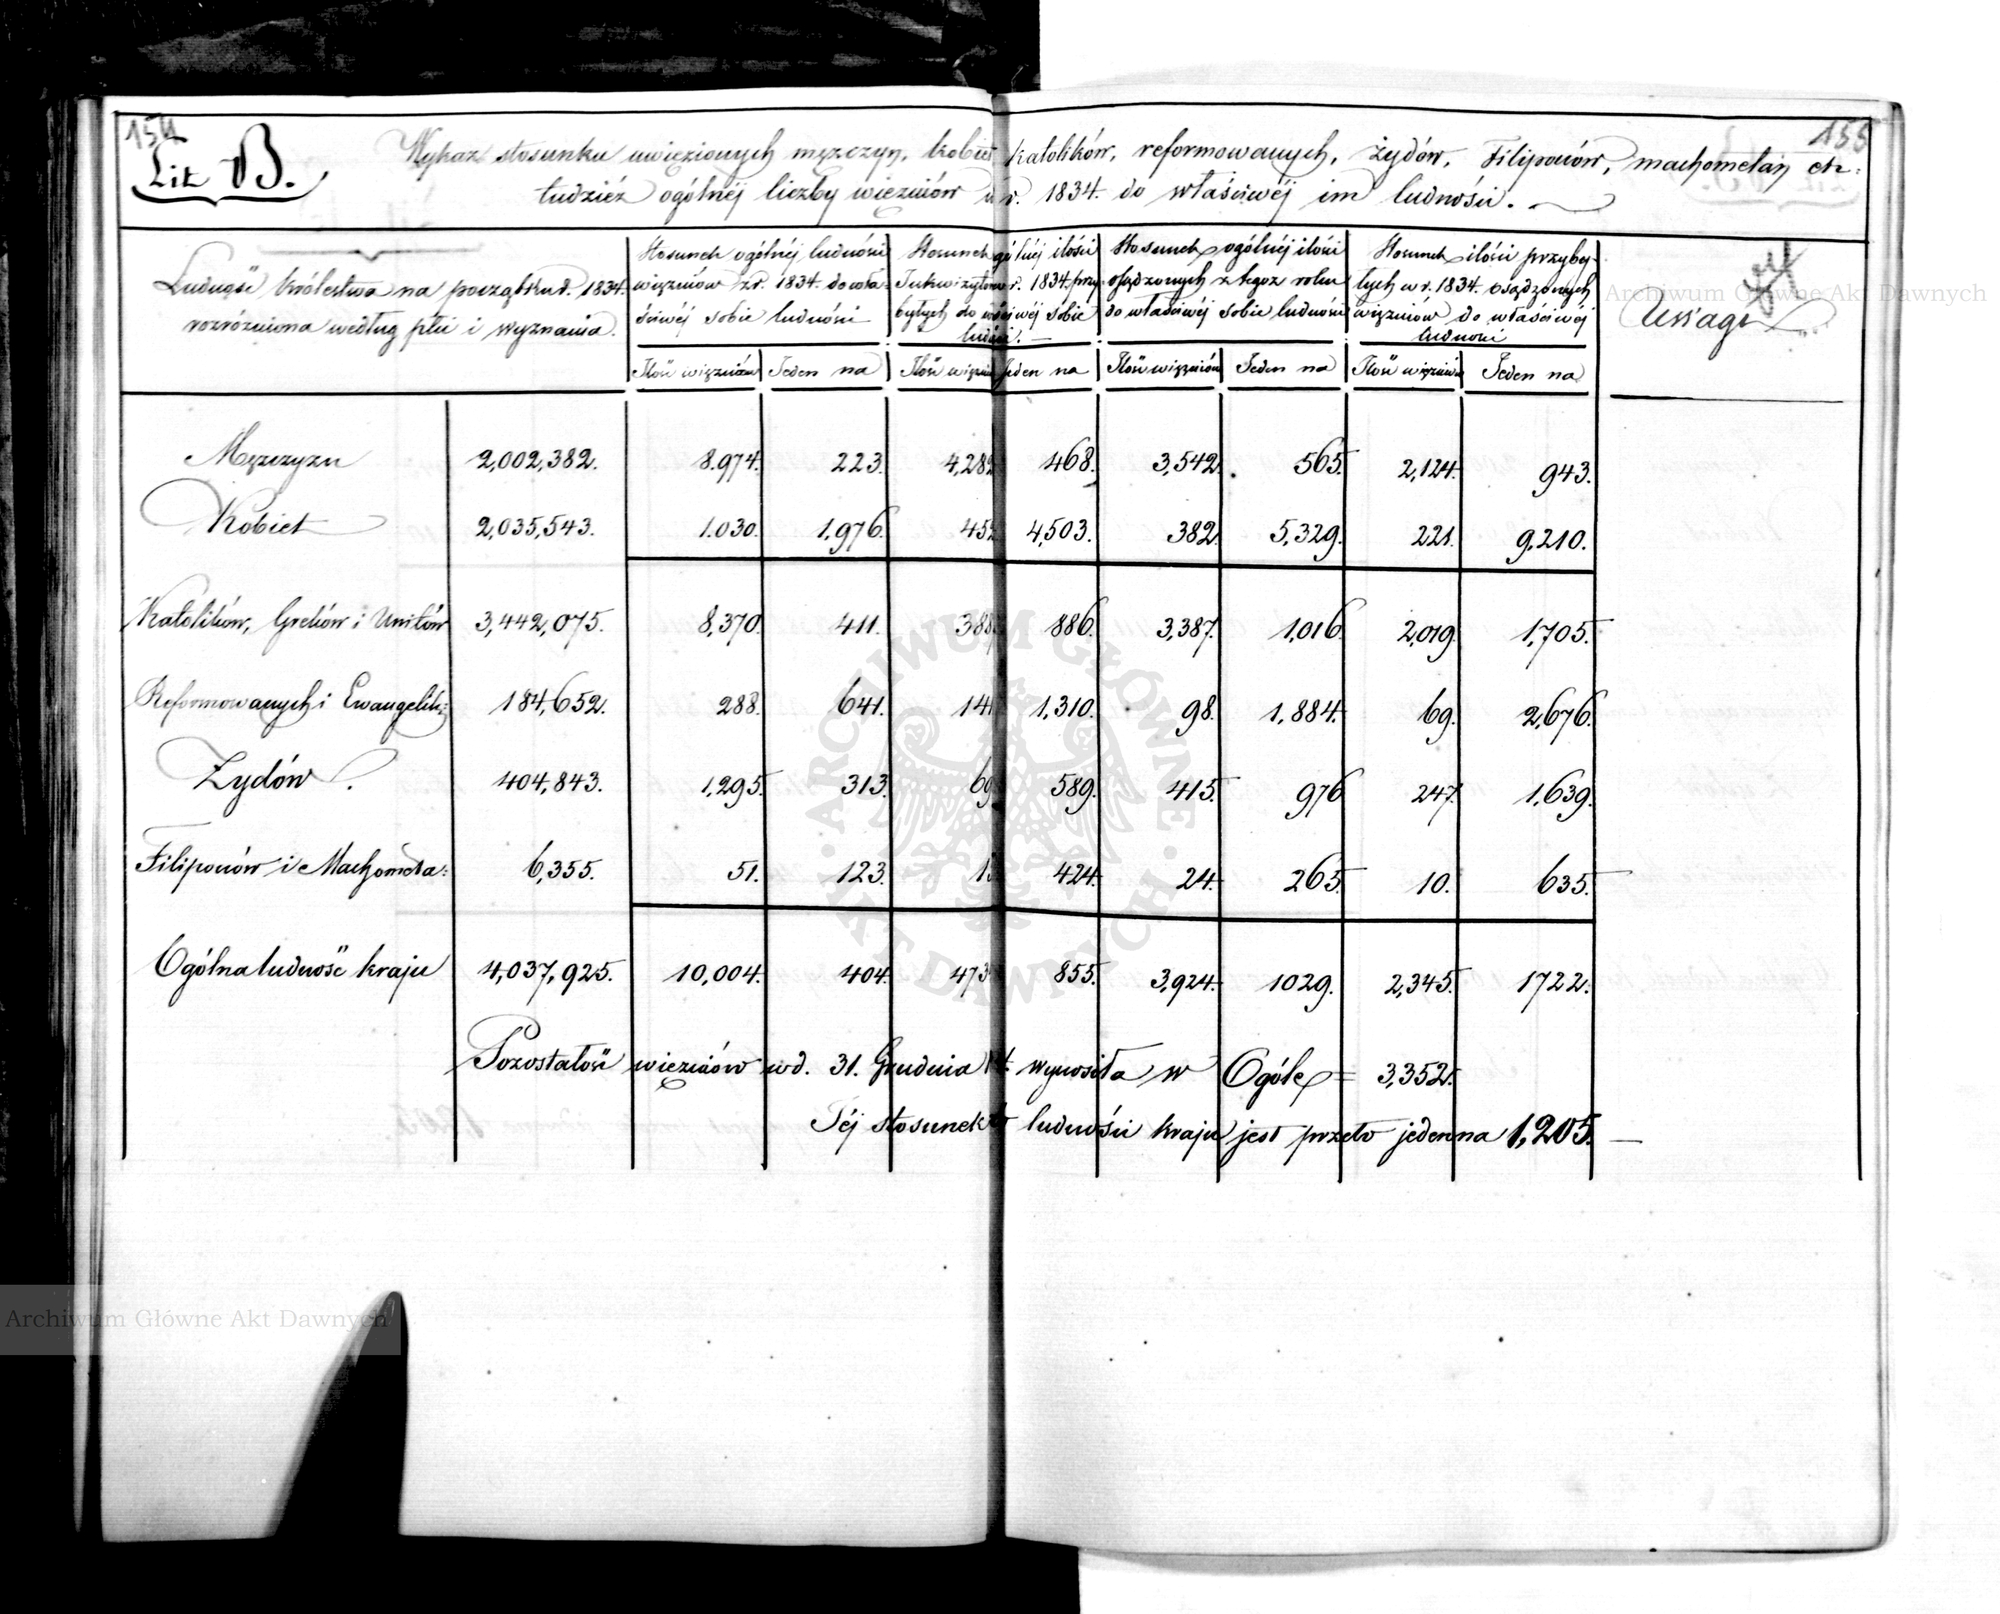 154
155
Lit B.
Wykaz stosunku uwięzionych mężczyzn, kobiet katolików, reformowanych, żydów, Filiponów, machometan etc:
tudzież ogólnéj liczby więźniów w r. 1834. do właściwéj im ludności.
Ludność Królestwa na początku r. 1834.
rozróżniona według płci i wyznania.
Stosunek ogólnéj ludności
więźniów z r. 1834. do wła-
ściwéj sobie ludności
Stosunek ogólnéj ilości
Inkwizytów w r. 1834. przy-
byłych do właściwéj sobie
ludności.
Stosunek ogólnéj ilości
osądzonych z tegoż roku
do właściwéj sobie ludności
Stosunek ilości przyby-
łych w r. 1834. osądzonych
więźniów do właściwéj
ludności
Uwagi
Ilość więźniów Jeden na Ilość więźni Jeden na Ilość więźniów Jeden na Ilość więźniów Jeden na
Mężczyzn 2,002,382. 8.974. 223. 4,282 468. 3,542. 565. 2,124. 943.
Kobiet 2,035,543. 1.030. 1,976. 452 4,503. 382. 5,329. 221. 9,210.
Katolików, Greków i Unitów 3,442,075. 8,370. 411. 388 886. 3,387. 1,016. 2,019. 1,705.
Reformowanych i Ewangelik: 184,652. 288. 641. 141 1,310. 98. 1,884. 69. 2,676.
Żydów. 404,843. 1,295. 313. 69 589. 415. 976 247. 1,639.
Filiponów i Machometa: 6,355. 51. 123. 15 424. 24. 265. 10. 635.
Ogólna ludność kraju 4,037,925. 10,004. 404. 473 855. 3,924. 1029. 2,345. 1722.
Pozostałość więźniów w d. 31. Grudnia wynosiła w Ogóle = 3,352.
Téj stosunek do ludności kraju jest przeto jeden na 1,205.
Archiwum Główne Akt Dawnych
ARCHIWUM GŁÓWNE AKT DAWNYCH
Archiwum Główne Akt Dawnych